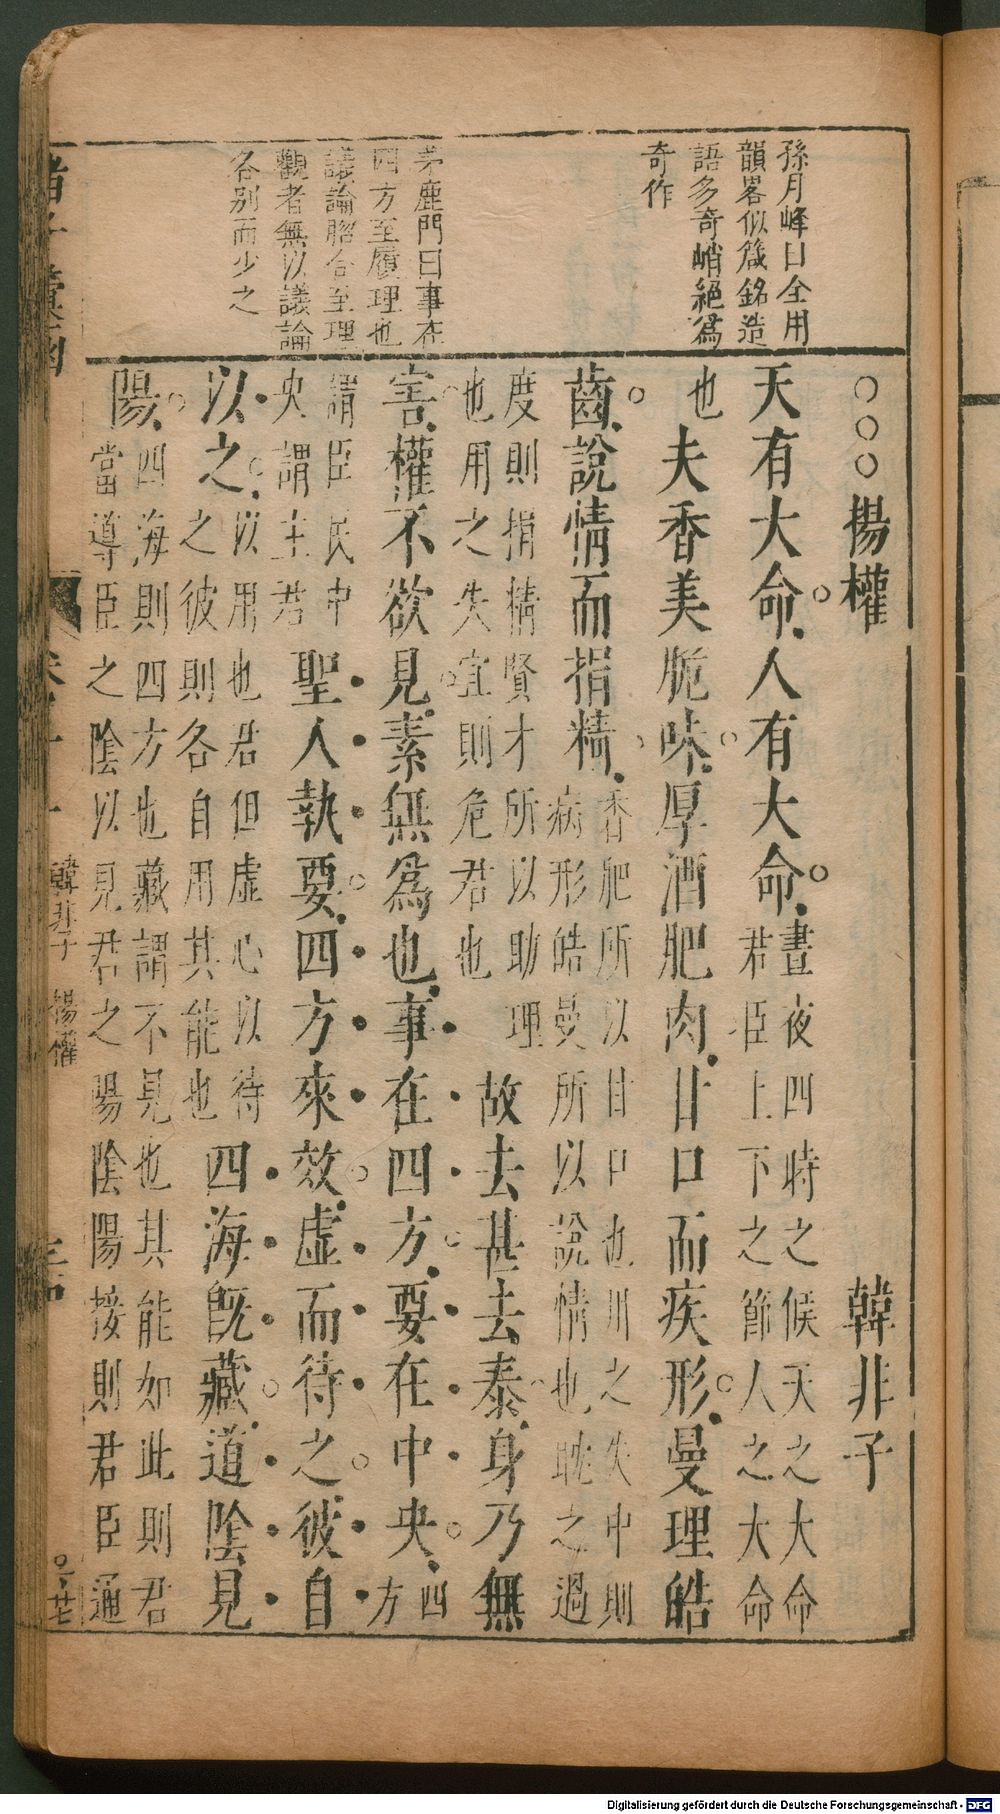 孫月峰曰全用
韻畧似箴銘造
語多奇峭絕爲
奇作
茅鹿門曰事在
四方至賾理也
議論脗合至理
觀者無以議論
各别而少之
○○○揚權　韓非子
天有大命人有大命晝夜四時之候天之大命
君臣上下之節人之大命
也夫香美脆味厚酒肥肉甘口而疾形曼理皓
齒說情而捐精香肥所以甘口也用之失中則
病形皓曼所以說情也耽之過
度則捐精賢才所以助理
也用之失宜則危君也故去甚去泰身乃無
害權不欲見素無爲也事在四方要在中央四
方
謂臣民中
央謂主君聖人執要四方來效虛而待之彼自
以之以用也君但虛心以待
之彼則各自用其能也四海旣藏道陰見
陽四海則四方也藏謂不見也其能如此則君
當導臣之陰以見君之陽陰陽接則君臣通
韓非子　揚權
Digitalisierung gefördert durch die Deutsche Forschungsgemeinschaft - DFG